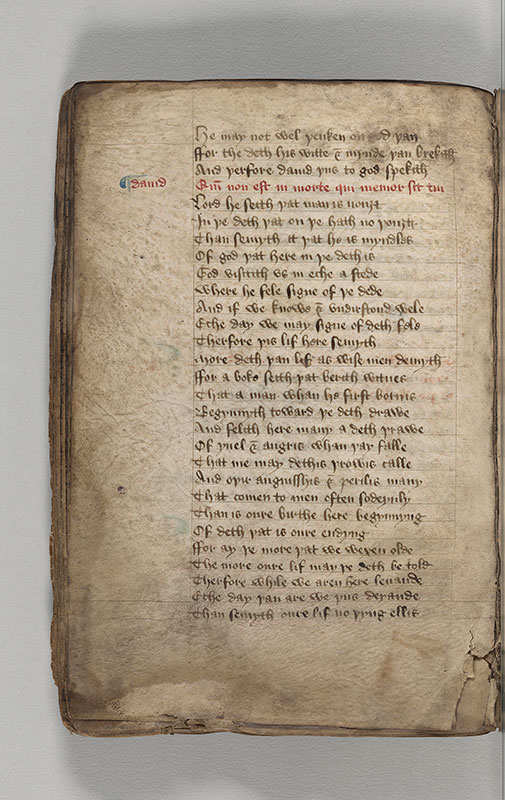 He may not wel þenken on god þan
ffor the deth his witte & mynde þan brekith
And þerfore dauid þus to god spekith
¶ dauid
Qm̄ non est in morte qui memor sit tui
Lord he seith þat man is nouȝt
In þe deth þat on þe hath no þouȝt
Than semyth it þat he is myndles
Of god þat here in þe deth is
God visitith vs in eche a stede
Where he fele signe of þe dede
And if we knowe & vndirstond wele
Eche day we may signe of deth fele
Therfore þis lif here semyth
More deth þan lif as wise men demyth
ffor a boke seith þat berith witnes
That a man whan he first born is
Begynnyth toward þe deth drawe
And felith here many a deth þrawe
Of yuel & angris whan þay falle
That me may dethis þrowis calle
And oþir anguisshis & perilis many
That comen to men often sodeynly
Than is oure birthe here begynnyng
Of deth þat is oure endyng
ffor ay þe more þat we wexen olde
The more oure lif may þe deth be told
Therfore while we aren here leuande
Eche day þan are we þus deyande
Than semyth oure lif no þing ellis